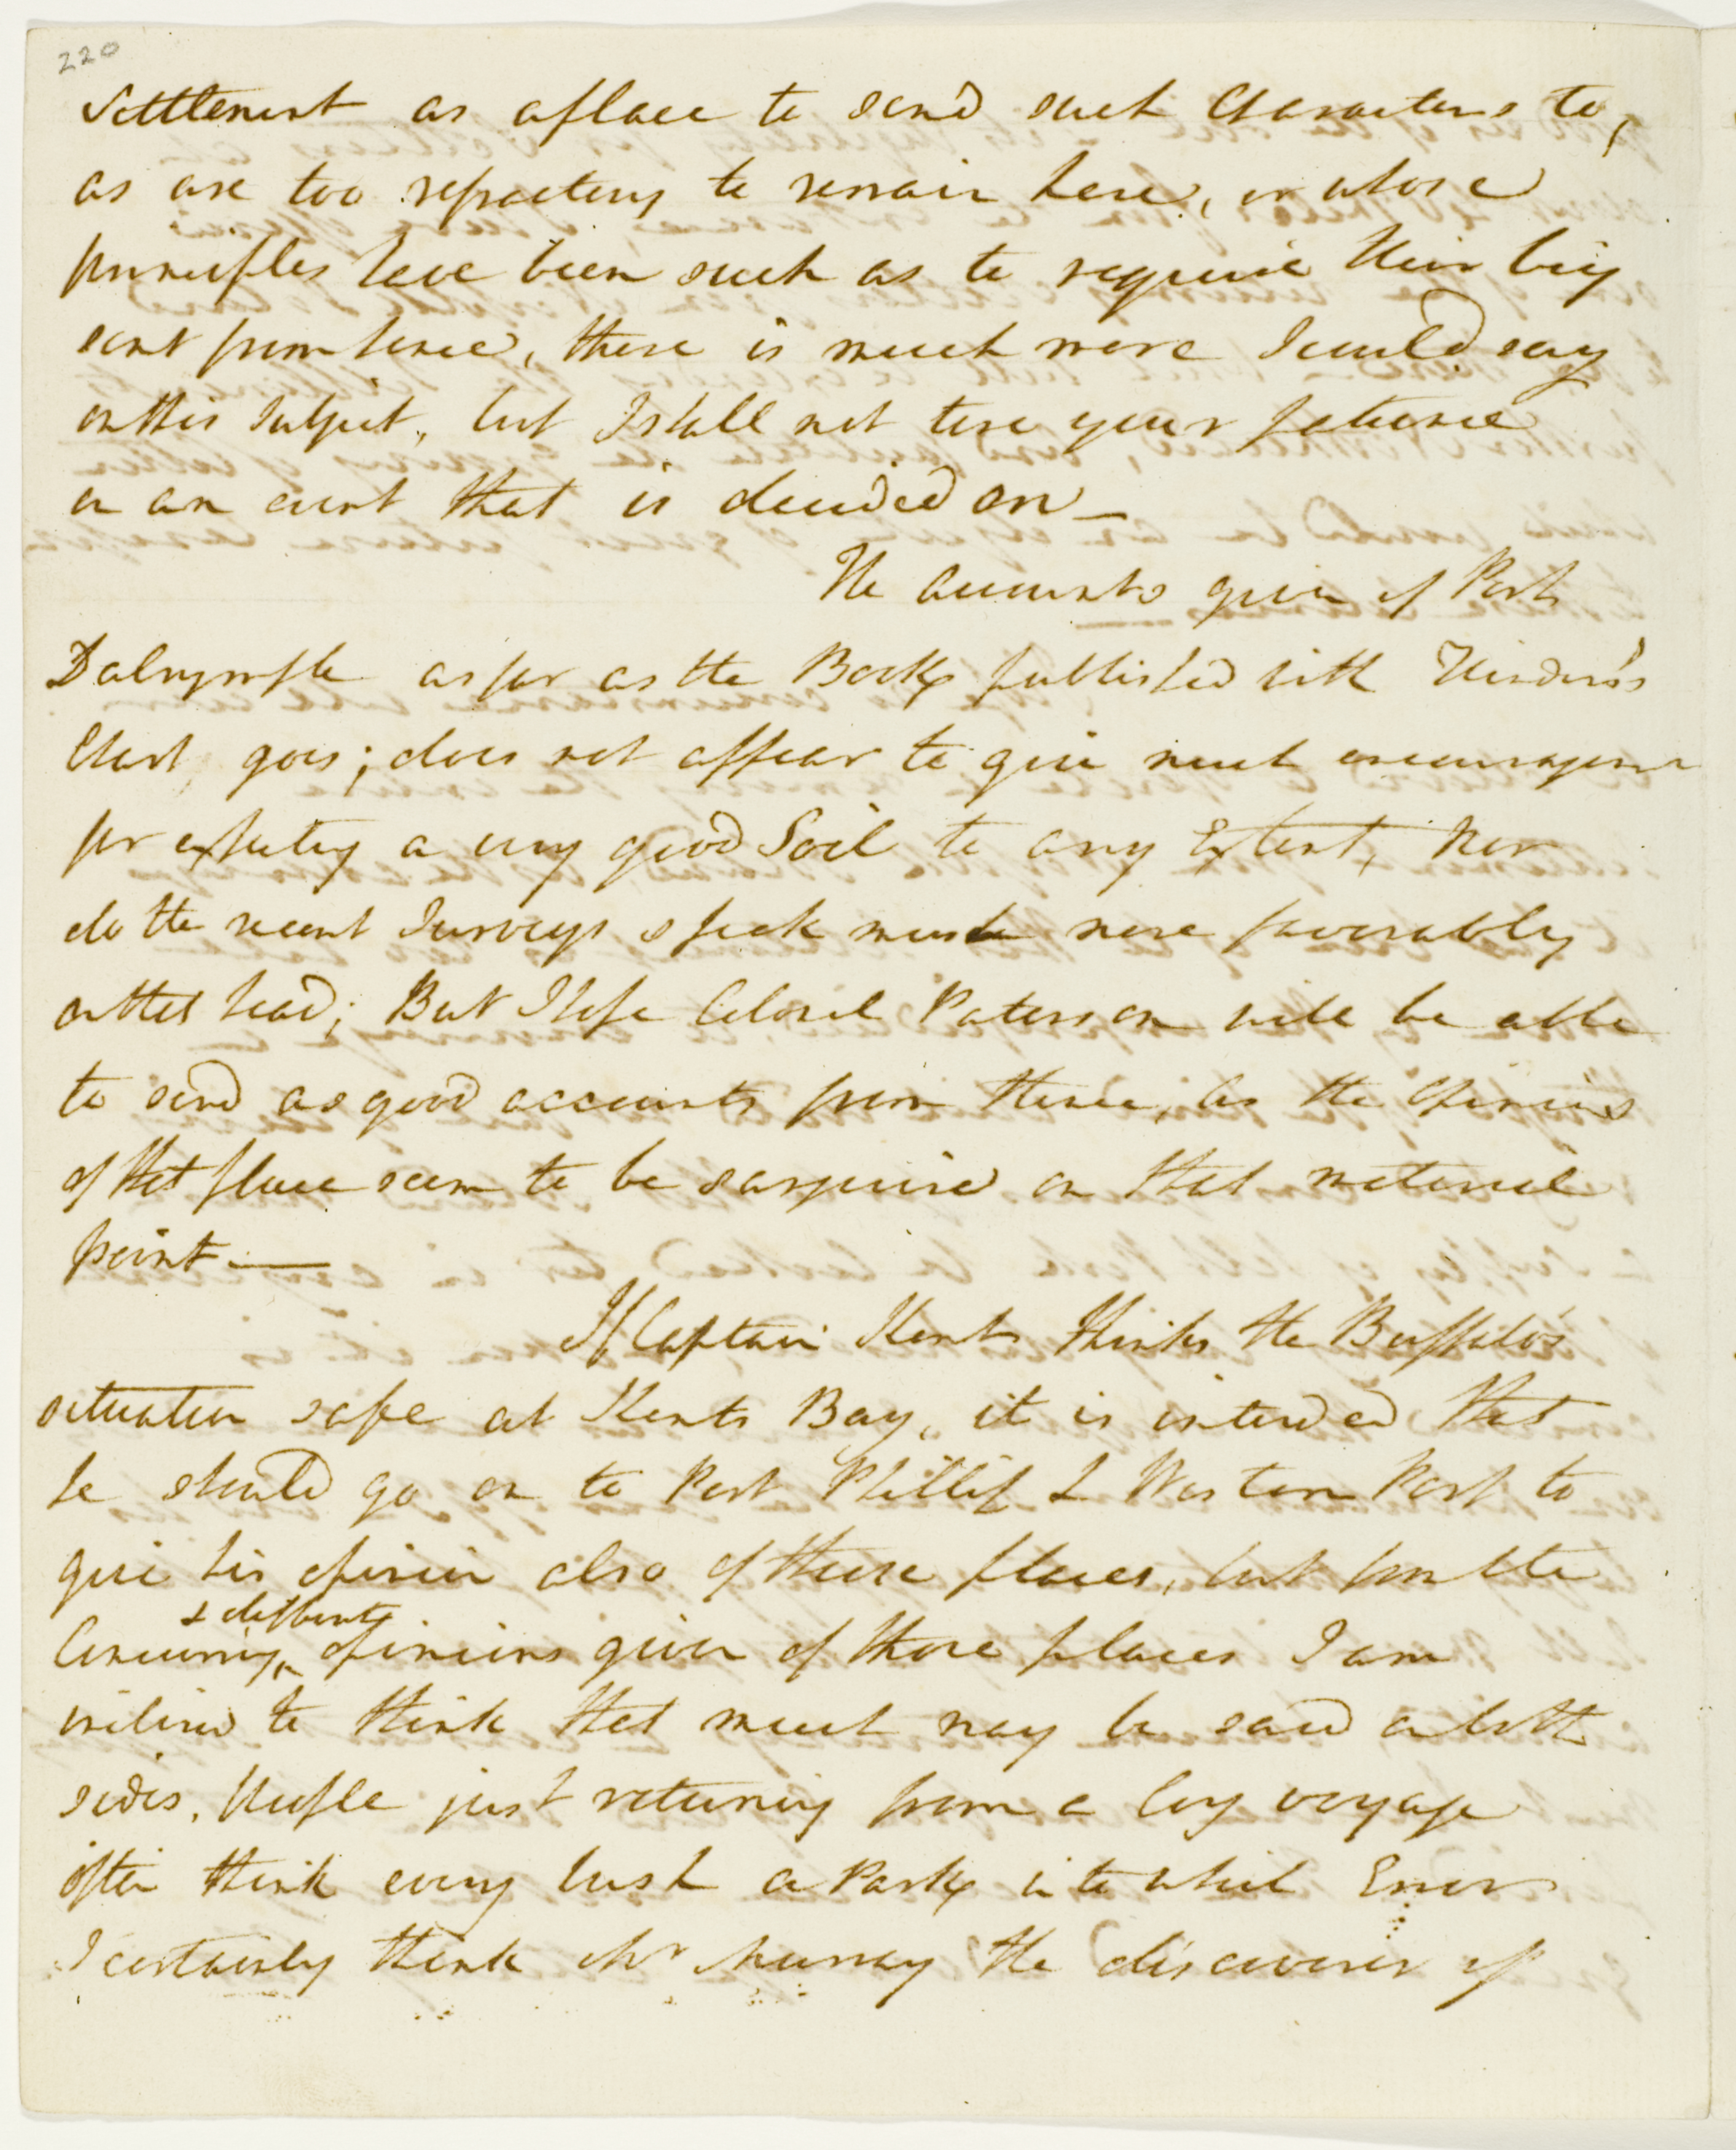 220
Settlement as a place to send such Characters to,
as are too refractory to remain here, or whose
principles have been such as to require their being
sent from hence, there is much more I could say
on this Subject, but I shall not tire your patience
on an event that is decided on —
The accounts given of Port
Dalrymple as far as the Book published with Flinders's
Chart goes; does not appear to give much encouragement
for expecting a very good Soil to any Extent, Nor
do the recent Surveys speak much more favorably
on that head; But I hope Colonel Paterson will be able
to send as good accounts from thence, as the Opinions
of that place seem to be sanguine on that material
point. —
If Captain Kent thinks the Buffalo's
situation safe at Kents Bay, it is intended that
he should go on to Port Phillip & Western Port to
give his opinion also of these places, but from the
& different
Concurring opinions given of those places I am
inclined to think that much may be said on both
sides, People just returning from a long voyage
often think every bush a Park into which Error
I certainly think Mr Murray the discoverer of